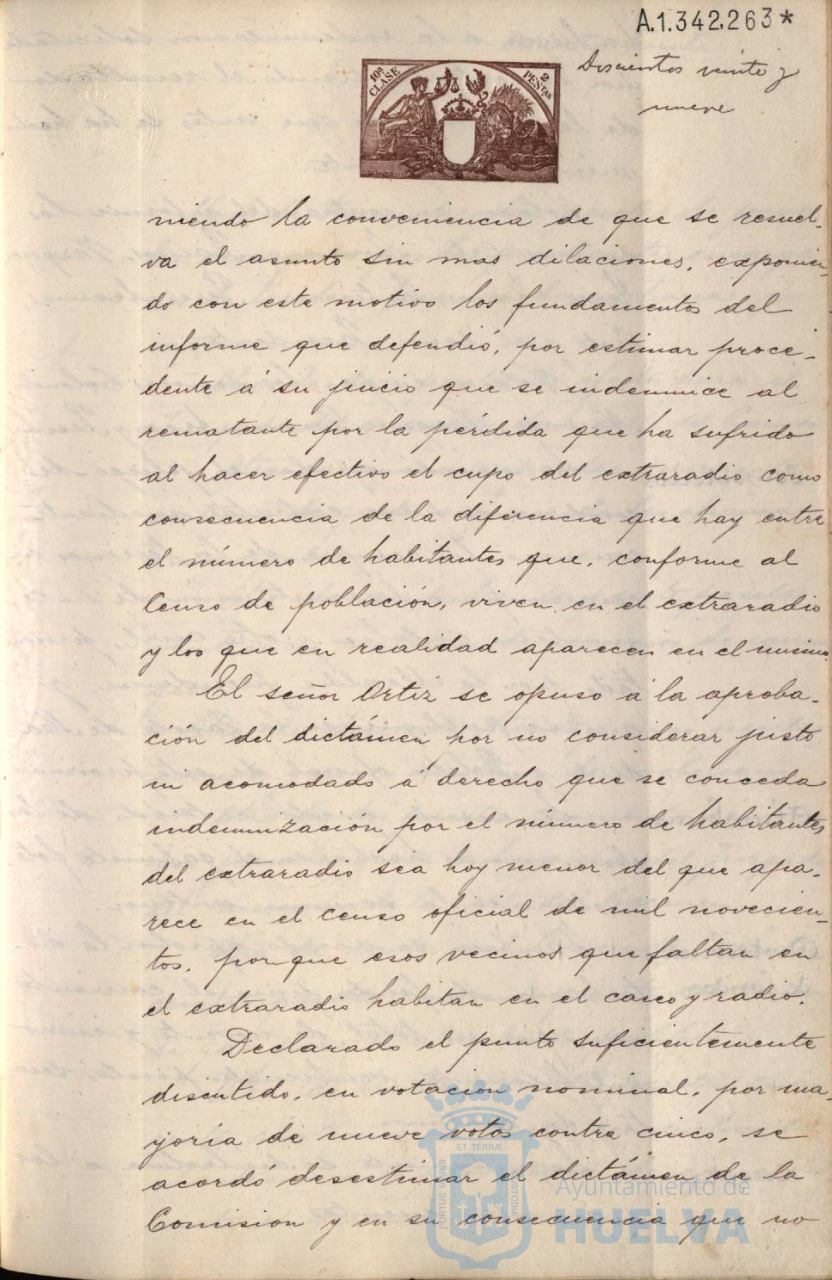 A.1.342.263*
10ª CLASE
2 PESTAS
Doscientos veinte y
nueve
niendo la conveniencia de que se resuel-
va el asunto sin mas dilaciones, exponien-
do con este motivo los fundamentos del
informe que defendió, por estimar proce-
dente á su juicio que se indemnice al
rematante por la pérdida que ha sufrido
al hacer efectivo el cupo del extraradio como
consecuencia de la diferencia que hay entre
el número de habitantes que, conforme al
Censo de población, viven en el extraradio
y los que en realidad aparecen en el mismo.
El señor Ortiz se opuso á la aproba-
ción del dictámen por no considerar justo
ni acomodado á derecho que se conceda
indemnización por el número de habitantes
del extraradio sea hoy menor del que apa-
rece en el censo oficial de mil novecien-
tos, porque esos vecinos que faltan en
el extraradio habitan en el casco y radio.
Declarado el punto suficientemente
discutido, en votación nominal, por ma-
yoría de nueve votos contra cinco, se
acordó desestimar el dictámen de la
Comision y en su consecuencia que no
ET TERRÆ
PORTUS MARIS
CUSTODIA
Ayuntamiento de
HUELVA